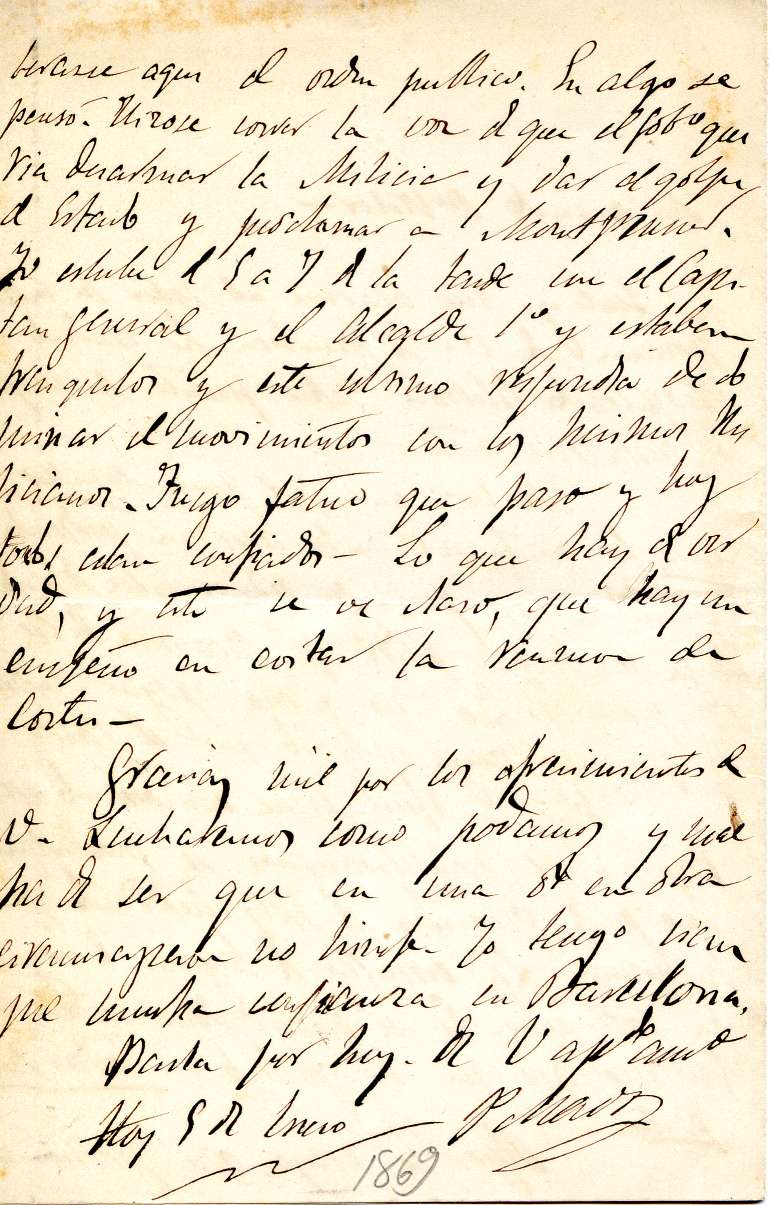 terarse aqui el orden publico. En algo se
pensó - Hizose correr la voz d que el Gobno que
ria desarmar la Milicia y dar el golpe
d Estado y proclamar a Montpensier.
Yo estube d 5 a 7 d la tarde con el Capi-
tan general y el Alcalde 1º y estaban
tranquilos y este ultimo respondia de do
minar el movimientos con los mismos Mi
licianos. Fuego fatuo que paso y hoy
todos estan confiados - Lo que hay d ver
dad, y esto se ve claro, que hay un
empeño en evitar la reunion de
Cortes -
Gracias mil por los ofrecimientos d
V - Lucharemos como podamos y mal
ha d ser que en una ó en otra
circunscripcion no triunfe. Yo tengo siem
pre mucha confianza en Barcelona.
Basta por hoy - de V apdo amo
Hoy 5 d Enero P Madoz
1869